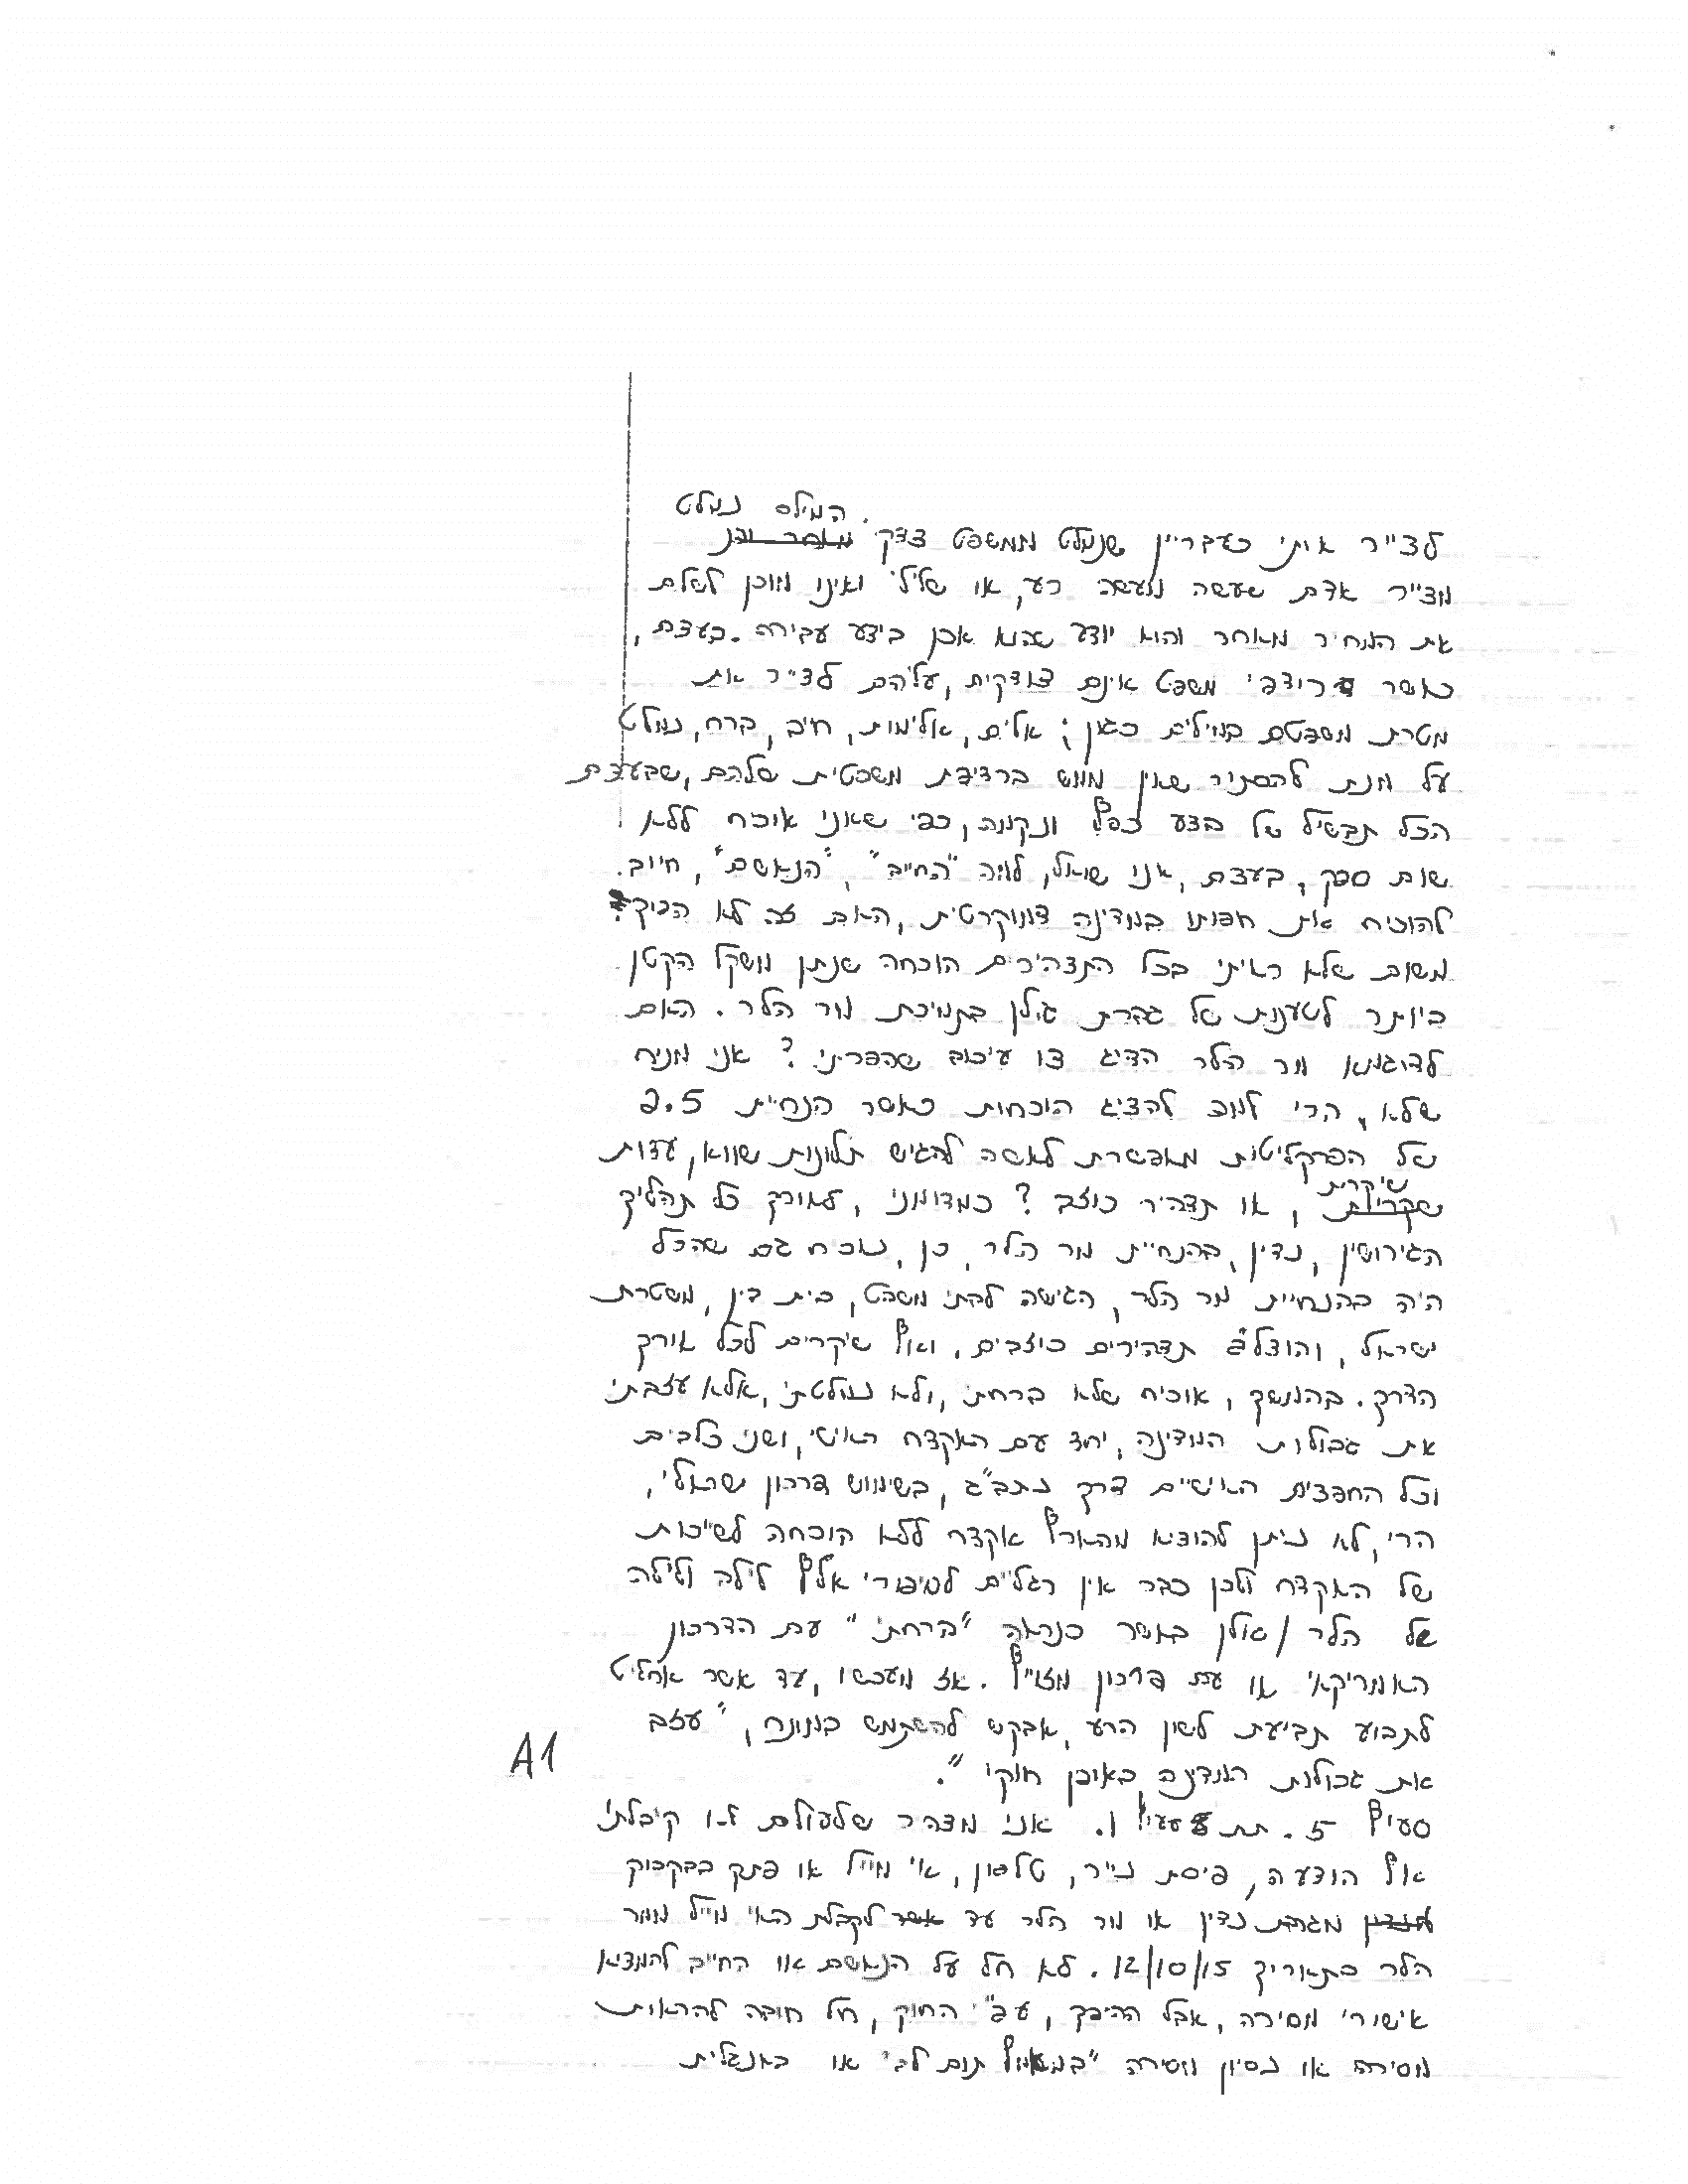 המילה נמלט
לצייר אותי כעבריין שנמלט ממשפט צדק.
מצייר אדם שעשה מעשה רע, או שלילי ואינו מוכן לשלם
את המחיר מאחר והוא יודע שהוא אכן ביצע עבירה. בעצם,
כאשר רידפי משפט אינם צודקים, עליהם לצייר את
מטרת משפטם במילים כגון; אלים, אלימות, חייב, ברח, נמלט
על מנת להסתיר שאין ממש ברדיפת משפטית שלהם, שבעצם
הכל תבשיל של בצע כסף ונקמה, כפי שאני אוכיח ללא
שום ספק, בעצם, אני שואל, למה "החייב", "הנאשם", חייב
להוכיח את חפותו במדינה דמוקרטית, האם זה לא הפיך?
משום שלא ראיתי בכל התצהירים הוכחה שנתן משקל הקטן
ביותר לטענות של גברת גולן בתמיכת מר הלר. האם
לדוגמא מר הלר הציג צו עיכוב שהפרתי? אני מניח
שלא, הרי למה להציג הוכחות כאשר הנחיית 2.5
של הפרקליטות מאפשרת לאשה להגיש תלונות שווא, עדות
שיקרית
, או תצהיר כוזב? כמדומני, לאורך כל תהליך
הגירושין, נדין, בהנחיית מר הלר, כן, נוכח גם שהכל
היה בהנחיית מר הלר, הגישה לבתי משפט, בית דין, משטרת
ישראל, והוצל"פ תצהירים כוזבים, ואף שיקרים לכל אורך
הדרך. בהמשך, אוכיח שלא ברחתי, ולא נמלטתי, אלא עזבתי
את גבולות המדינה, יחד עם האקדח האישי, ושני כלבים
וכל החפצים האישיים דרך נתב"ג, בשימוש דרכון ישראלי,
הרי, לא ניתן להוציא מהארץ אקדח ללא הוכחה לשיכות
של האקדח ולכן כבר אין רגליים לסיפורי אלף לילה ולילה
של הלר/גולן כאשר כנראה "ברחתי" עם הדרכון
האמריקאי או עם דרכון מזוייף. אז מעכשו, עד אשר אחליט
לתבוע תביעת לשון הרע, אבקש להשתמש במונח, "עזב
את גבולות המדינה באופן חוקי".
A1
סעיף 5. תת סעיף 1. אני מצהיר שלעולם לא קיבלתי
אף הודעה, פיסת נייר, טלפון, אי מייל או פתק בבקבוק
מגברת נדין או מר הלר עד לקבלת האי מייל ממר
הלר בתאריך 12/10/15. לא חל על הנאשם או החייב להמציא
אישורי מסירה, אבל ההיפך, עפ"י החוק, חל חובה להראות
מסירה או נסיון מסירה "במאמץ תום לב" או באנגלית